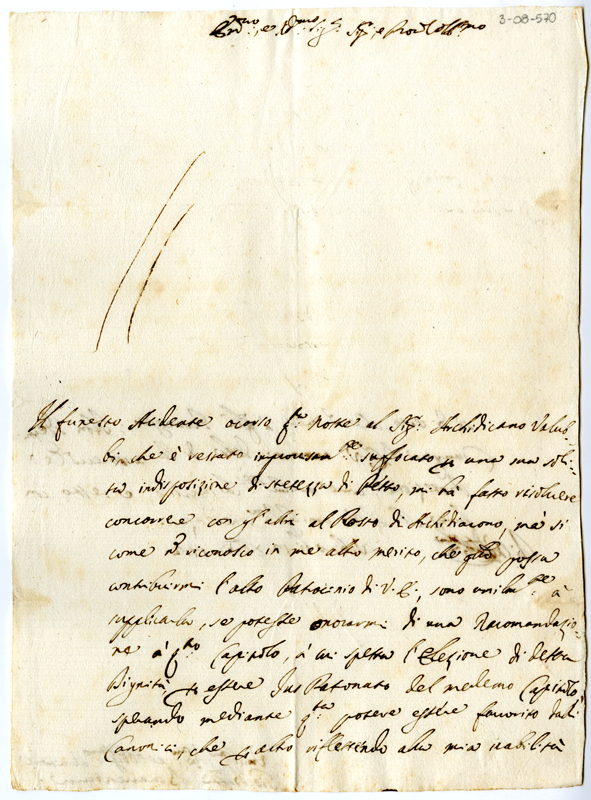 3-08-570
Em.mo, e R.mo Sig.r Sig.r, e Pron Coll.mo
Il funesto Acidente ocorso q.ta Notte al Sig.r Archidicano Valub-
bi, che è restato improvisam.te suffocato p una sua soli-
ta indisposizione di stretezza di Petto, mi hà fatto risoluere
concorrere con gl'altri al Posto di Archidiacono, mà si
come ñ riconosco in me altro merito, che quello possa
contribuirmi l'alto Patrocinio di V. E., sono umilm.te à
supplicarla, se potesse onorarmi di una Racomandazio-
ne à q.sto Capitolo, à cui spetta l'Elezione di detta
Dignità p essere Jus Patronato del medemo Capitolo
sperando mediante q.sta potere essere favorito dali
Canonici, che p altro riflettendo alla mia inabilità